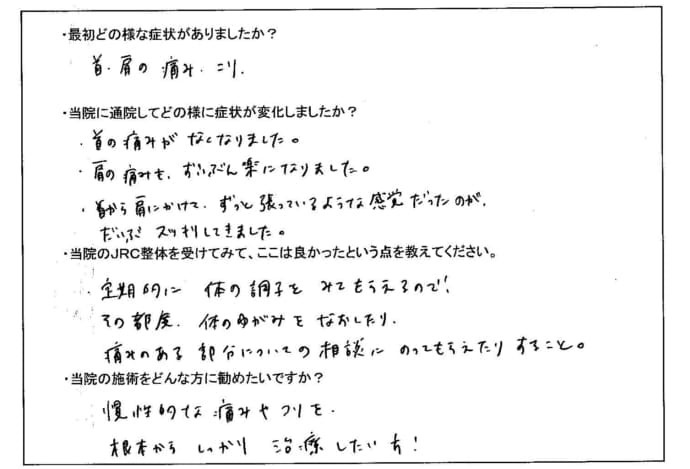 ・最初どの様な症状がありましたか？
首・肩の痛み・こり．
・当院に通院してどの様に症状が変化しましたか？
・首の痛みがなくなりました。
・肩の痛みも、ずいぶん楽になりました。
・首から肩にかけて、ずっと張っているような感覚だったのが、
だいぶスッキリしてきました。
・当院のJRC整体を受けてみて、ここは良かったという点を教えてください。
・定期的に体の調子をみてもらえるので、
その都度、体のゆがみをなおしたり、
痛みのある部分についての相談にのってもらえたりすること。
・当院の施術をどんな方に勧めたいですか？
慢性的な痛みやコリを、
根本からしっかり治療したい方！